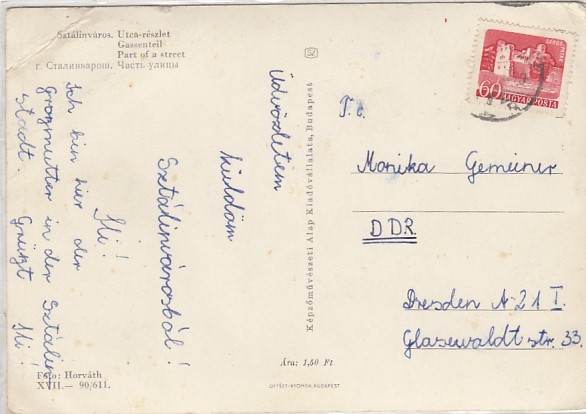 Sztálinváros. Utca-részlet
Gassenteil
Part of a street
г. Сталинварош. Часть улицы
Üdvözletem
küldöm
Sztálinvárosból!
Ili!
Ich bin hier der
Großmutter in der Sztálin
stadt. Grüszt Ili!
Foto: Horváth
XVII.— 90/611.
Ára: 1,50 Ft
OFFSET-NYOMDA, BUDAPEST
Képzőművészeti Alap Kiadóvállalata, Budapest
SZ
60 MAGYAR POSTA
T. c.
Monika Gemeiner
DDR.
Dresden A-21 I.
Glasewaldt str. 33.